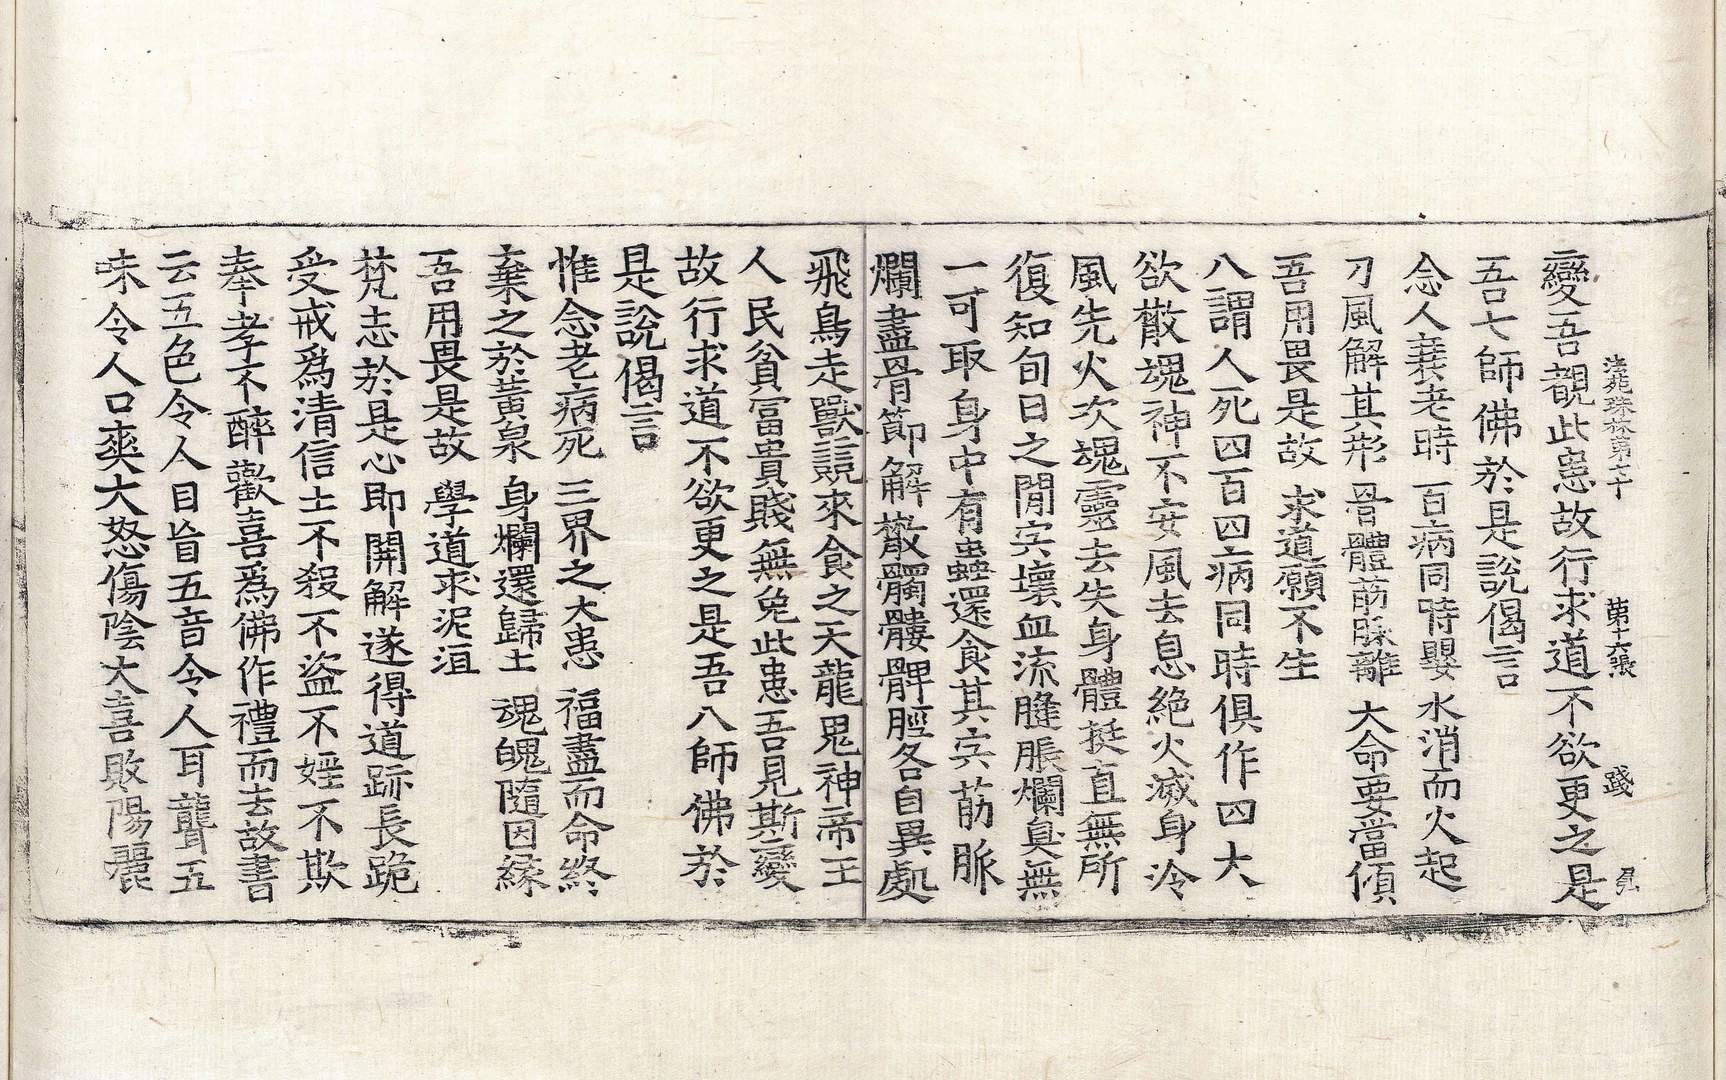 變吾覩此患故行求道不欲更之是
法苑珠林第七十 第十六張 踐
吾七師佛於是說偈言
念人衰老時 百病同時嬰 水消而火起
刀風解其形 骨體筋脉離 大命要當傾
吾用畏是故 求道願不生
八謂人死四百四病同時俱作四大
欲散魂神不安風去息絶火滅身冷
風先火次魂靈去矣身體挺直無所
復知旬日之閒肉壞血流膖脹爛臭無
一可取身中有蟲還食其肉筋脈
爛盡骨節解散髑髏髀脛各自異處
飛鳥走獸競來食之天龍鬼神帝王
人民貧富貴賤無免此患吾見斯變
故行求道不欲更之是吾八師佛於
是說偈言
惟念老病死 三界之大患 福盡而命終
棄之於黃泉 身爛還歸土 魂魄隨因緣
吾用畏是故 學道求泥洹
梵志於是心即開解遂得道跡長跪
受戒爲清信士不殺不盜不婬不欺
奉孝不醉歡喜爲佛作禮而去故書
云五色令人目盲五音令人耳聾五
味令人口爽大怒傷陰大喜敗陽麗